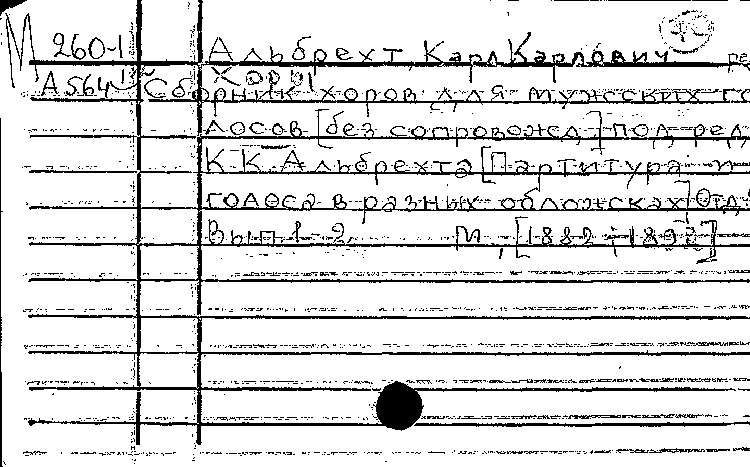 М 260-1 Альбрехт, Карл Карлович ре
А564 Хоры
Сборник хоров для мужских го-
лосов [без сопровожд.] под ред.
К.К. Альбрехта [Партитура и
голоса в разных обложках] Отд.
Вып 1-2. М., [1882-1892]